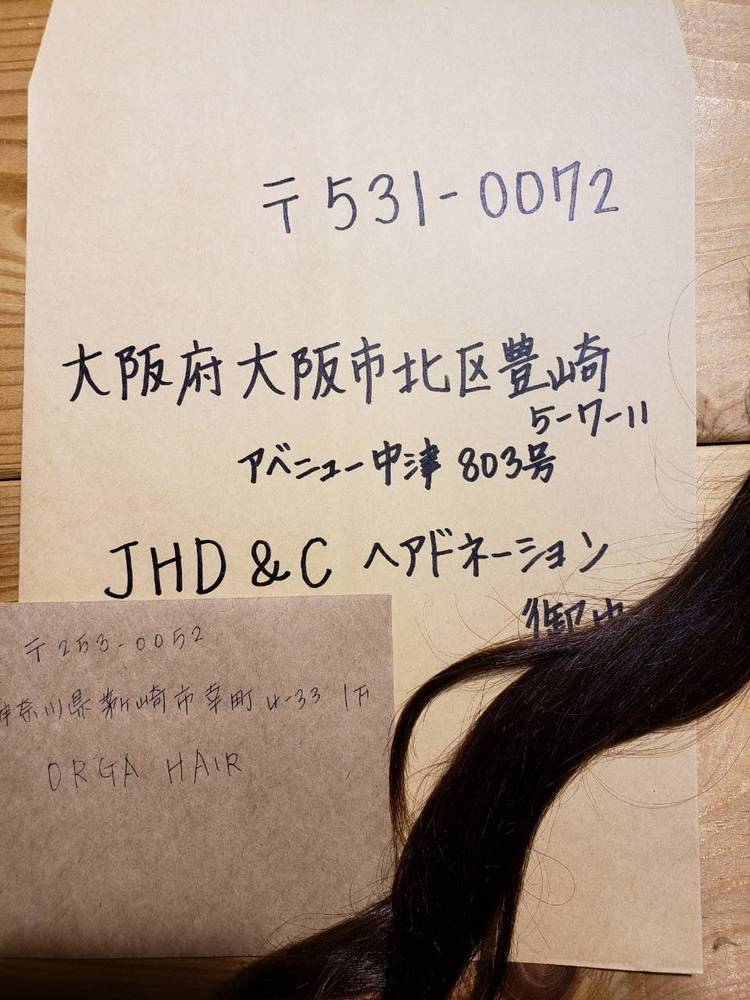 〒531-0072
大阪府大阪市北区豊崎
5-7-11
アベニュー中津 803号
JHD&C ヘアドネーション
御中
〒253-0052
神奈川県茅ヶ崎市幸町4-33 1F
ORGA HAIR